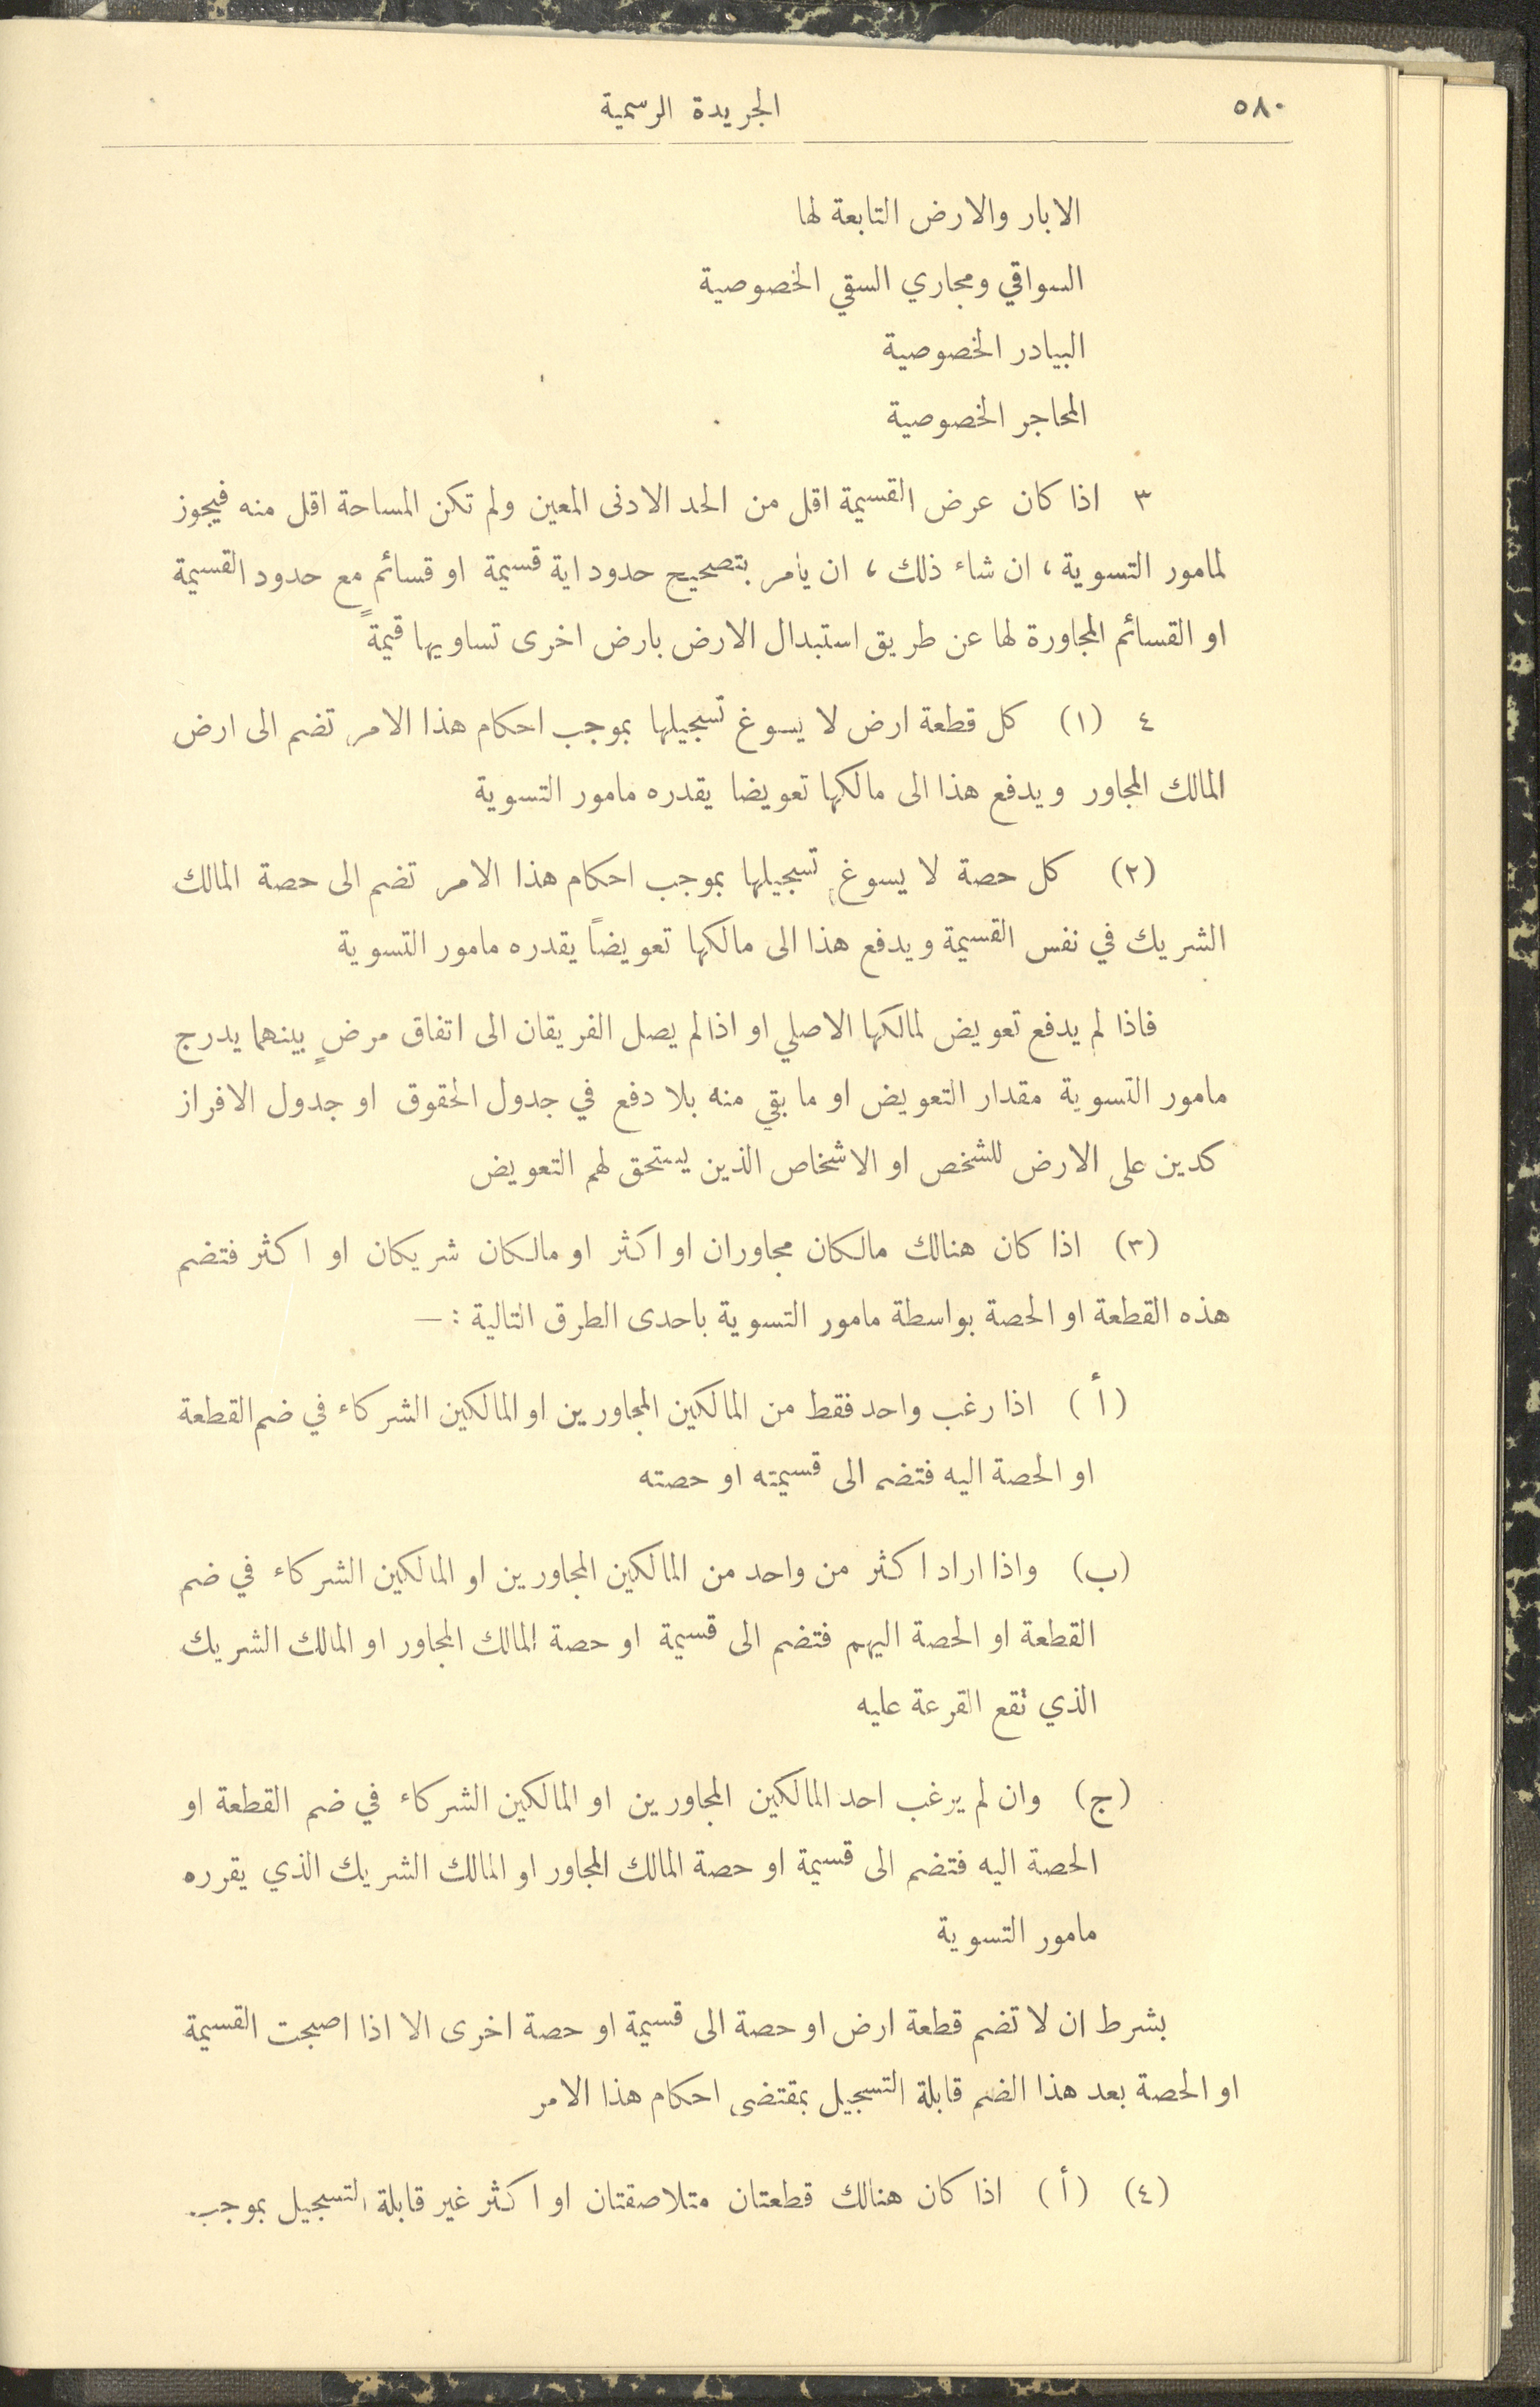 ٥٨٠ الجريدة الرسمية
الابار والارض التابعة لها
السواقي ومجاري السقي الخصوصية
البيادر الخصوصية
المحاجر الخصوصية
٣ اذا كان عرض القسيمة اقل من الحد الادنى المعين ولم تكن المساحة اقل منه فيجوز
لمامور التسوية ، ان شاء ذلك ، ان يامر بتصحيح حدود اية قسيمة او قسائم مع حدود القسيمة
او القسائم المجاورة لها عن طريق استبدال الارض بارض اخرى تساويها قيمةً
٤ (١) كل قطعة ارض لا يسوغ تسجيلها بموجب احكام هذا الامر تضم الى ارض
المالك المجاور ويدفع هذا الى مالكها تعويضا يقدره مامور التسوية
(٢) كل حصة لا يسوغ تسجيلها بموجب احكام هذا الامر تضم الى حصة المالك
الشريك في نفس القسيمة ويدفع هذا الى مالكها تعويضاً يقدره مامور التسوية
فاذا لم يدفع تعويض لمالكها الاصلي او اذا لم يصل الفريقان الى اتفاق مرضٍ بينهما يدرج
مامور التسوية مقدار التعويض او ما بقي منه بلا دفع في جدول الحقوق او جدول الافراز
كدين على الارض للشخص او الاشخاص الذين يستحق لهم التعويض
(٣) اذا كان هنالك مالكان مجاوران او اكثر او مالكان شريكان او اكثر فتضم
هذه القطعة او الحصة بواسطة مامور التسوية باحدى الطرق التالية :—
(أ) اذا رغب واحد فقط من المالكين المجاورين او المالكين الشركاء في ضم القطعة
او الحصة اليه فتضم الى قسيمته او حصته
(ب) واذا اراد اكثر من واحد من المالكين المجاورين او المالكين الشركاء في ضم
القطعة او الحصة اليهم فتضم الى قسيمة او حصة المالك المجاور او المالك الشريك
الذي تقع القرعة عليه
(ج) وان لم يرغب احد المالكين المجاورين او المالكين الشركاء في ضم القطعة او
الحصة اليه فتضم الى قسيمة او حصة المالك المجاور او المالك الشريك الذي يقرره
مامور التسوية
بشرط ان لا تضم قطعة ارض او حصة الى قسيمة او حصة اخرى الا اذا اصبحت القسيمة
او الحصة بعد هذا الضم قابلة التسجيل بمقتضى احكام هذا الامر
(٤) (أ) اذا كان هنالك قطعتان متلاصقتان او اكثر غير قابلة التسجيل بموجب